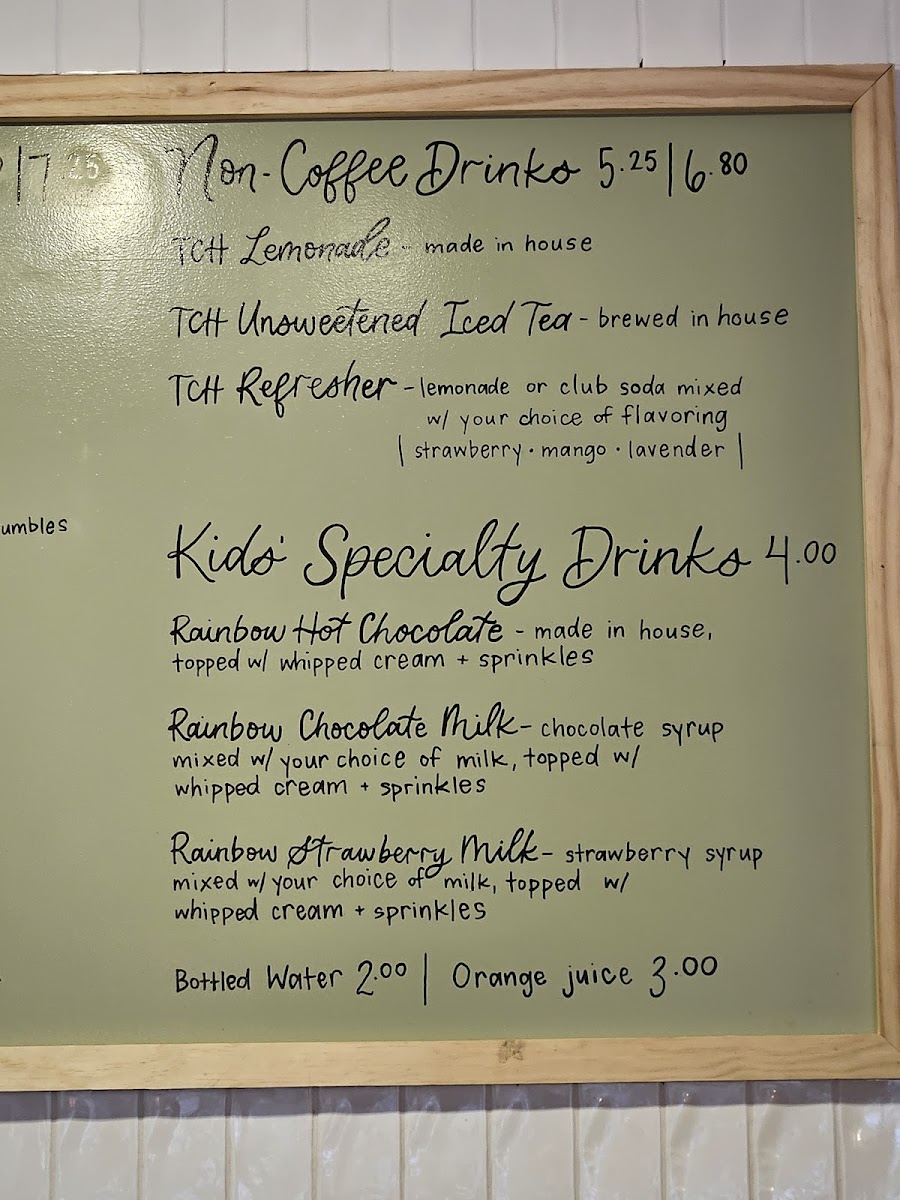 |7.25
Non-Coffee Drinks 5.25|6.80
TCH Lemonade - made in house
TCH Unsweetened Iced Tea - brewed in house
TCH Refresher - lemonade or club soda mixed
w/ your choice of flavoring
| strawberry · mango · lavender |
umbles
Kids' Specialty Drinks 4.00
Rainbow Hot Chocolate - made in house,
topped w/ whipped cream + sprinkles
Rainbow Chocolate Milk - chocolate syrup
mixed w/ your choice of milk, topped w/
whipped cream + sprinkles
Rainbow Strawberry Milk - strawberry syrup
mixed w/ your choice of milk, topped w/
whipped cream + sprinkles
Bottled Water 2.00 | Orange juice 3.00